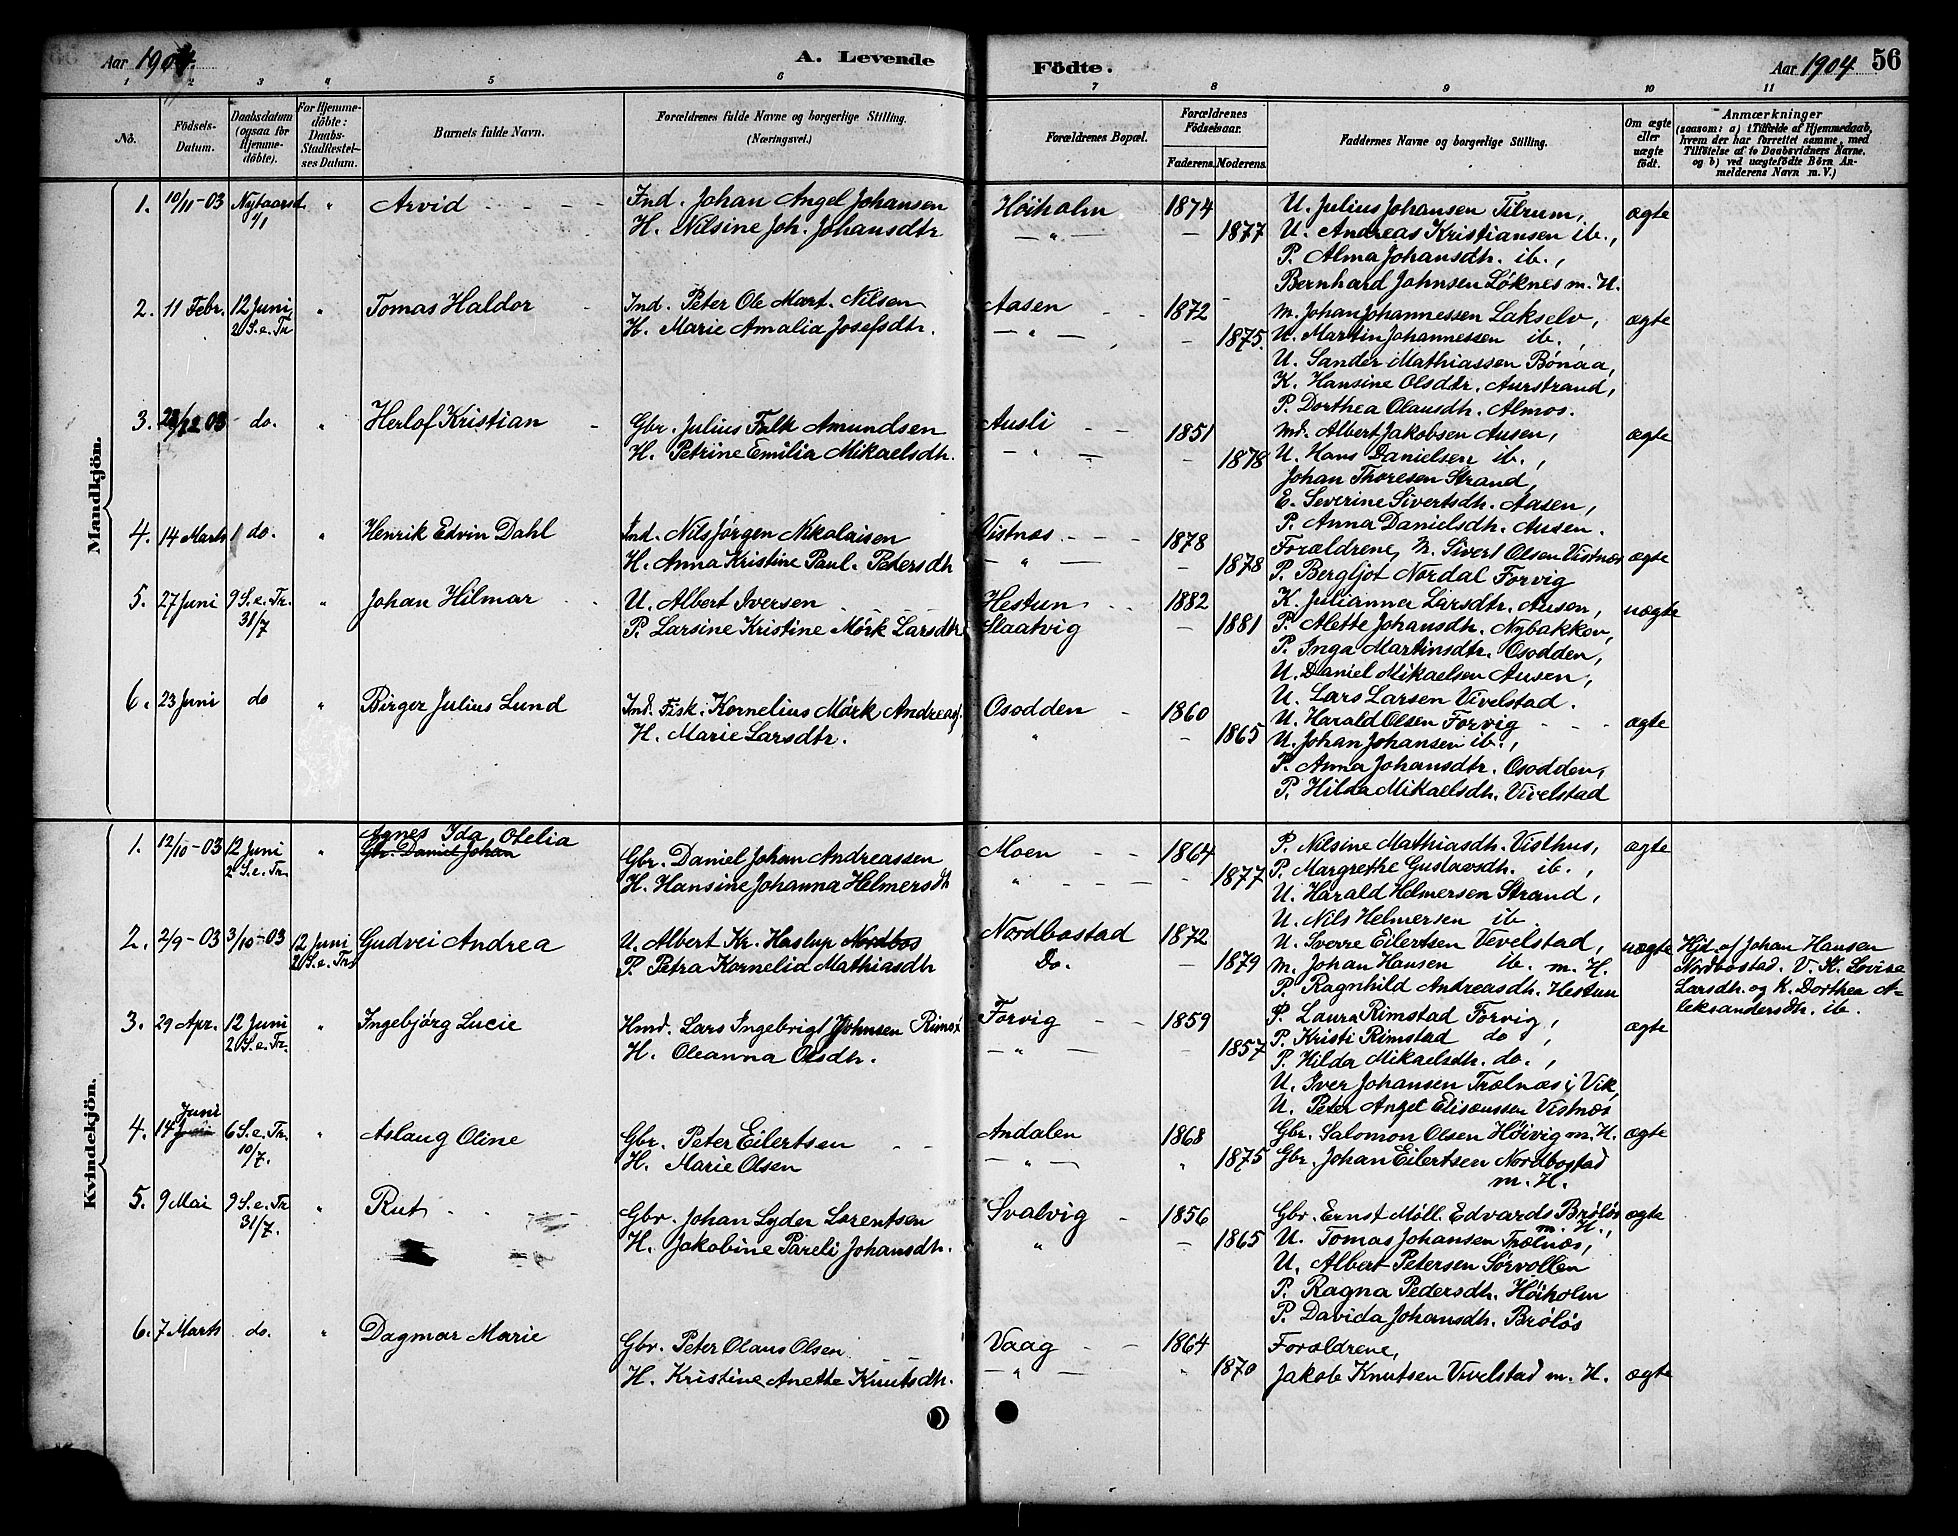 Aar 1904. A. Levende Födte. Aar 1904 56
1 2 3 4 5 6 7 8 9 10 11
No. Födsels-Datum. Daabsdatum (ogsaa for Hjemme-döbte). For Hjemme-döbte: Daabs-Stadfæstel-ses Datum. Barnets fulde Navn. Forældrenes fulde Navne og borgerlige Stilling. (Næringsvei.) Forældrenes Bopæl. Forældrenes Födselsaar. Faderens. Moderens. Faddernes Navne og borgerlige Stilling. Om ægte eller uægte födt. Anmærkninger (saasom: a) i Tilfælde af Hjemmedaab, hvem der har forrettet samme, med Tilföielse af to Daabsvidners Navne, og b) ved uægtefödte Börn An-melderens Navn m. V.)
Mandkjön.
1. 10/11-03 Nytaarsd. 1/1 " Arvid Ind. Johan Angel Johansen Høiholm 1874 U. Julius Johansen Tilrum, ægte
H. Nilsine Joh. Johansdtr — " — — 1877 U. Andreas Kristiansen ib.,
P. Alma Johansdtr. ib.,
Bernhard Johnsen Løknes m. H.
2. 11 Febr. 12 Juni " Tomas Haldor Ind. Peter Ole Mart. Nilsen Aasen 1872 M. Johan Johannessen Lakselv, ægte
2 S. e. Tr H. Marie Amalia Josefsdtr. — " — — 1875. U. Martin Johannessen ib.,
U. Sander Mathiassen Bønaa,
K. Hansine Olsdtr. Aurstrand,
P. Dorthea Olausdtr. Almos.
3. 23/12 03 do. " Herlof Kristian Gbr. Julius Falk Amundsen Ausli 1851 Md. Albert Jakobsen Ausen, ægte
H. Petrine Emilia Mikaelsdtr. — " — — 1878 U. Hans Danielsen ib.,
Johan Thoresen Strand,
E. Severine Sivertsdtr. Aasen,
P. Anna Danielsdtr. Ausen.
4. 14 Marts do. " Henrik Edvin Dahl Ind. Nils Jørgen Nikolaisen Vistnæs 1878 Forældrene, M. Sivert Olsen Vistnæs ægte
H. Anna Kristine Paul. Petersdtr — " — — 1878 P. Bergljot Nordal Forvig
5. 27 Juni 9 S. e. Tr. " Johan Hilmar U. Albert Iversen Hestun 1882 K. Julianna Larsdtr. Ausen, uægte
31/7 P. Larsine Kristine Mørk Larsdtr Slaatvig — 1881 P. Alette Johansdtr. Nybakkov,
P. Inga Martinsdtr. Osodden,
U. Daniel Mikaelsen Ausen,
U. Lars Larsen Vivelstad.
6. 23 Juni do " Birger Julius Lund Ind. Fisk. Kornelius Mørk Andreas. Osodden 1860 U. Harald Olsen Forvig ægte
H. Marie Larsdtr. " — 1865 U. Johan Johansen ib.,
P. Anna Johansdtr. Osodden,
P. Hilda Mikaelsdtr. Vivelstad
Kvindekjön.
1. 12/10-03 12 Juni " Agnes Ida Otelia Gbr. Daniel Johan Andreassen Moen 1864 P. Nilsine Mathiasdtr. Visthus, ægte
2 S. e. Tr. Gbr. Daniel Johan H. Hansine Johanna Helmersdtr " — 1877 P. Margrethe Gustavsdtr. ib.,
U. Harald Helmersen Strand,
U. Nils Helmersen ib.
2. 2/9-03 3/10-03 12 Juni Gudvei Andrea U. Albert Kr. Haslup Nordbos Nordbostad 1872 U. Sverre Eilertsen Vevelstad, uægte Hjd. af Johan Hansen
2 S. e. Tr. P. Petra Kornelia Mathiasdtr Do. — 1879 M. Johan Hansen ib. m. H. Nordbostad. V. K. Lovise
P. Ragnhild Andreasdtr. Hestun Larsdtr. og K. Dorthea A-
leksandersdtr. ib.
3. 29 Apr. 12 Juni " Ingebjørg Lucie Hmd. Lars Ingebrigt Johnsen Rimst Forvig 1859 P. Laura Rimstad Forvig, ægte
2 S. e. Tr. H. Oleanna Olsdtr. — " — 1857 P. Kristi Rimstad do,
P. Hilda Mikaelsdtr. do.,
U. Iver Johansen Trælnæs i Vik,
U. Peter Angel Eliseussen Vistnæs
4. 14 Juni 6 S. e. Tr. " Aslaug Oline Gbr. Peter Eilertsen Andalen 1868 Gbr. Salomon Olsen Høivig m. H. ægte
10/7. H. Marie Olsen — " — " 1875 Gbr. Johan Eilertsen Nordbostad
m. H.
5. 9 Mai 9 S. e. Tr " Rut Gbr. Johan Lyder Lorentsen Svalvig 1856 Gbr. Ernst Møll. Edvards Brøløs ægte
31/7. H. Jakobine Pareli Johansdtr. " — 1865 m. H.,
U. Tomas Johansen Trælnæs,
U. Albert Petersen Sørvollen
P. Ragna Pedersdtr. Høiholm
P. Davida Johansdtr. Brøløs
6. 7 Marts do. " Dagmar Marie Gbr. Peter Olaus Olsen Vaag 1864 Forældrene,
H. Kristine Anette Knutsdtr. — " — " 1870 Jakob Knutsen Vevelstad m. H. ægte